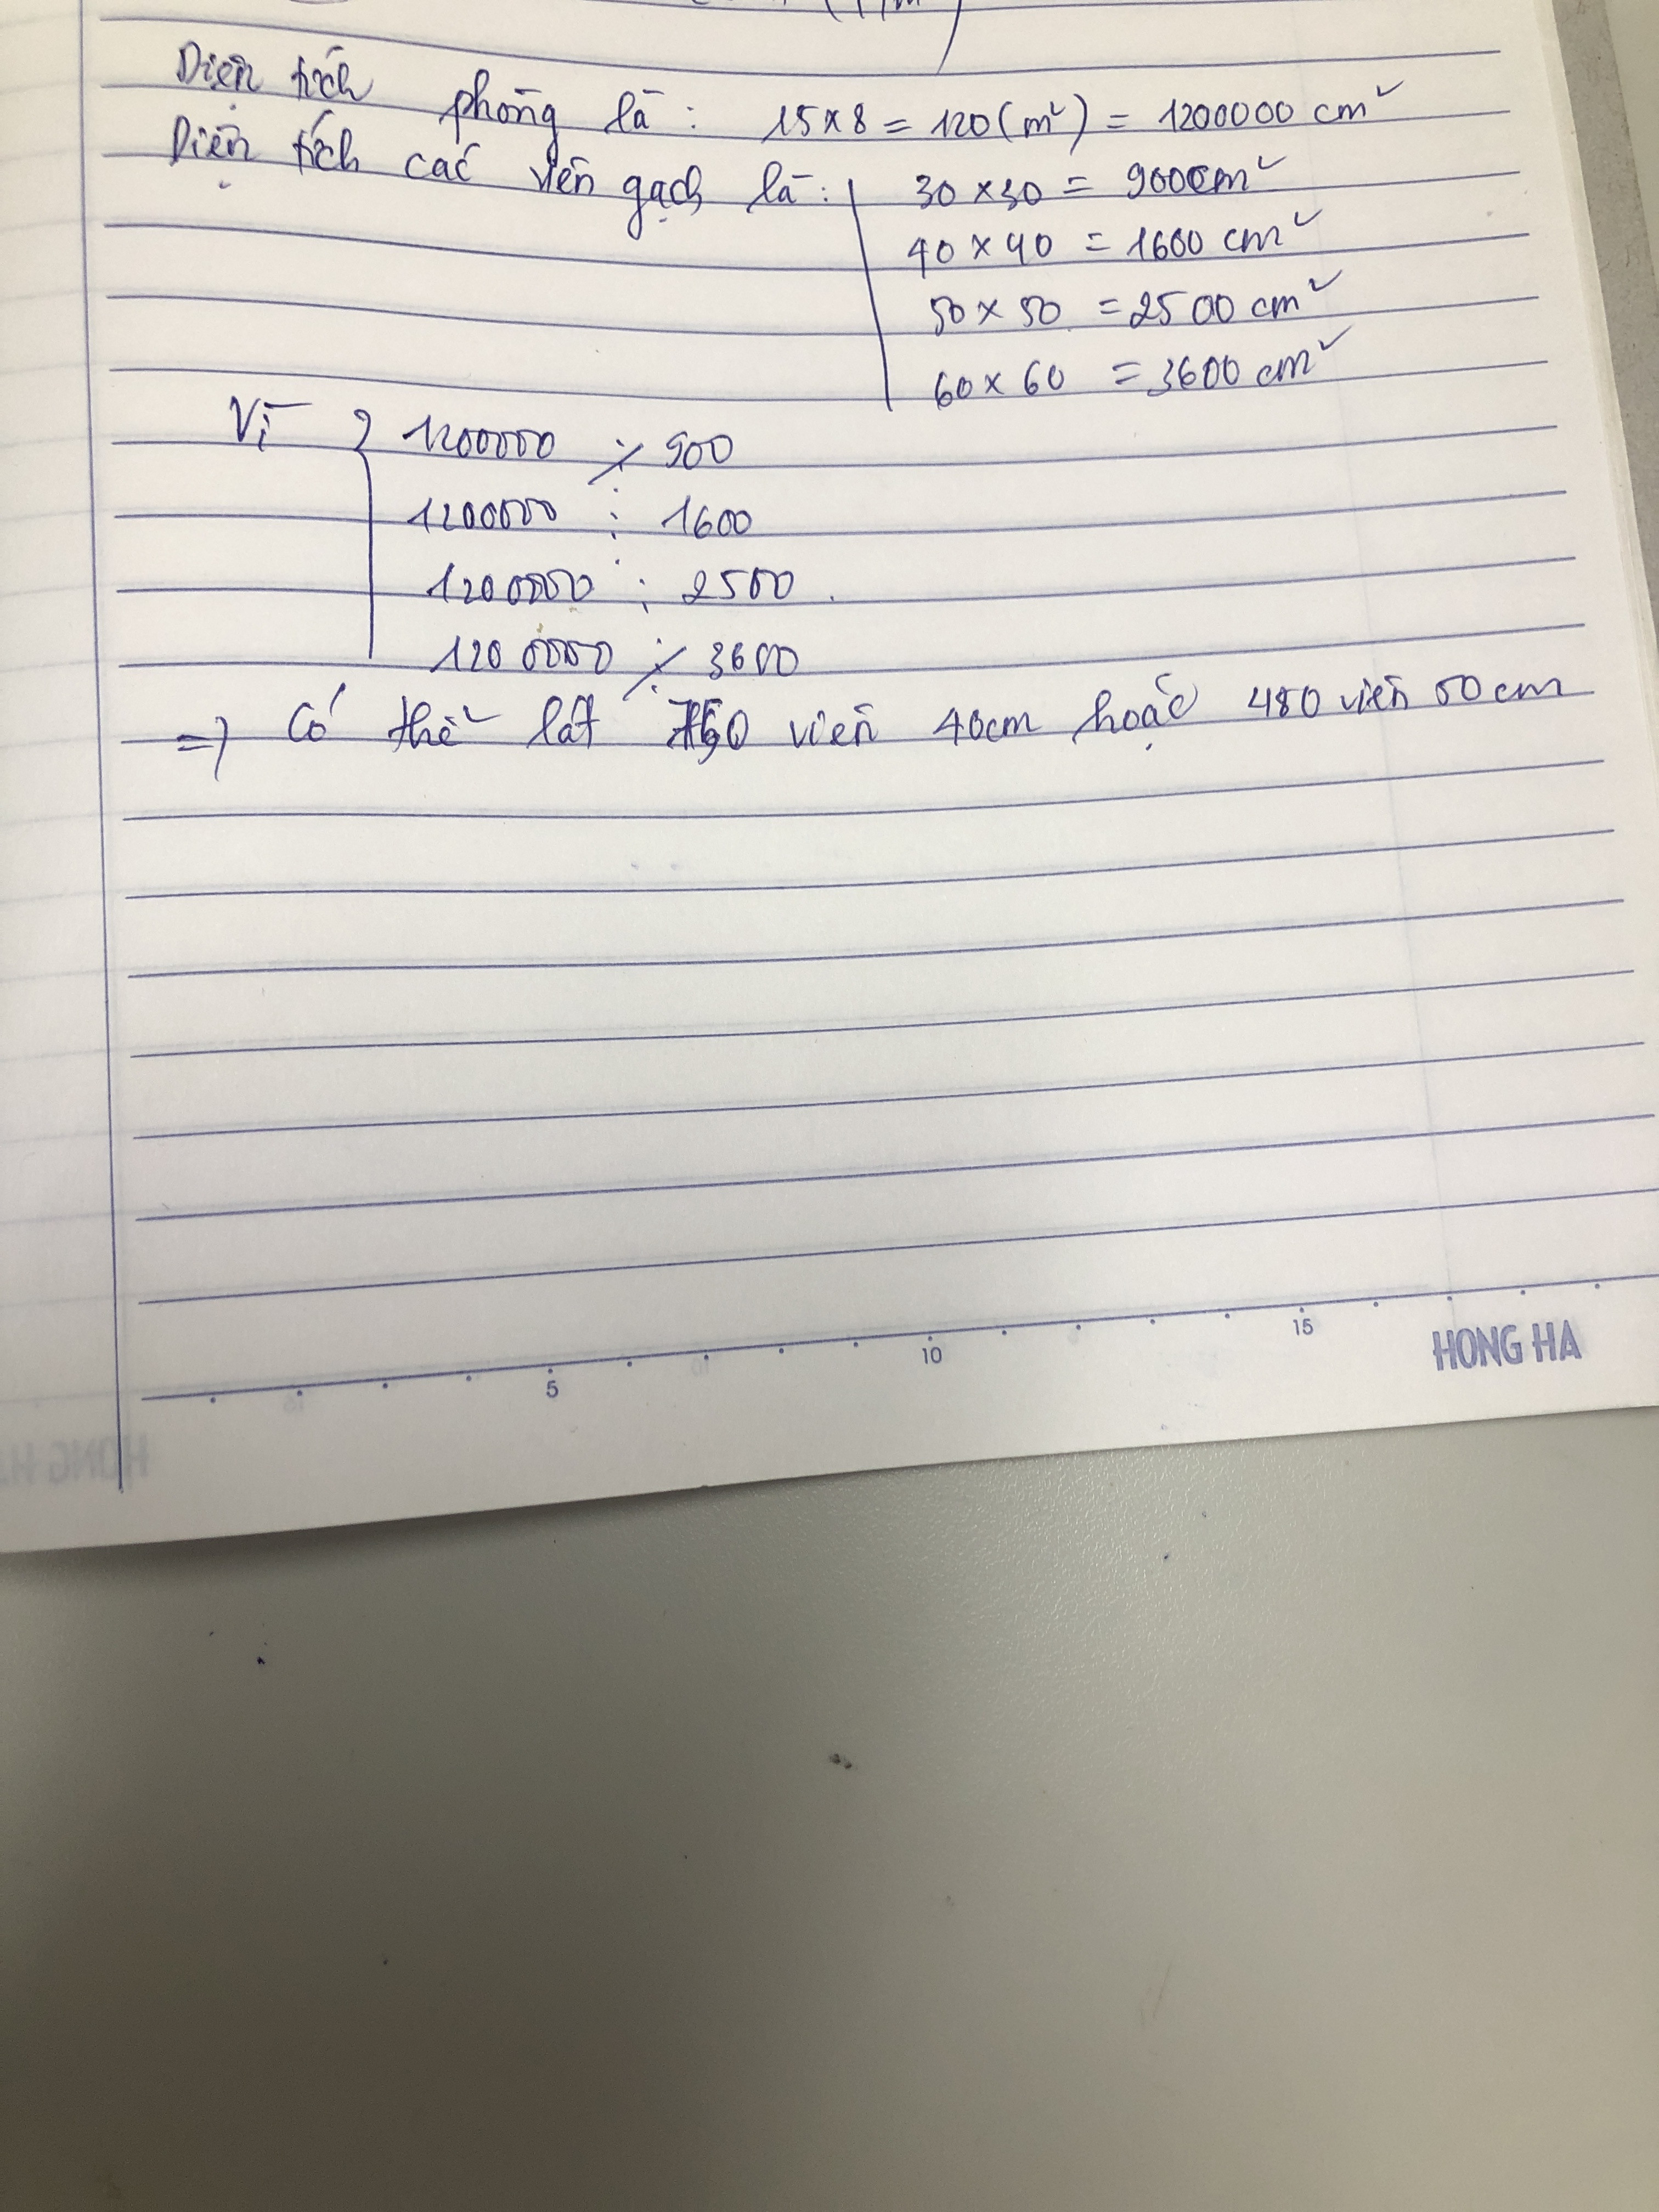 Diện tích phòng là: 15 x 8 = 120 (m²) = 1200000 cm²
Diện tích các viên gạch là: 30 x 30 = 900cm²
40 x 40 = 1600 cm²
50 x 50 = 2500 cm²
60 x 60 = 3600 cm²
Vì { 1200000 ⋮̸ 900
1200000 ⋮ 1600
1200000 ⋮ 2500
1200000 ⋮̸ 3600
=> Có thể lát 750 viên 40cm hoặc 480 viên 50cm
5 10 15
HONG HA